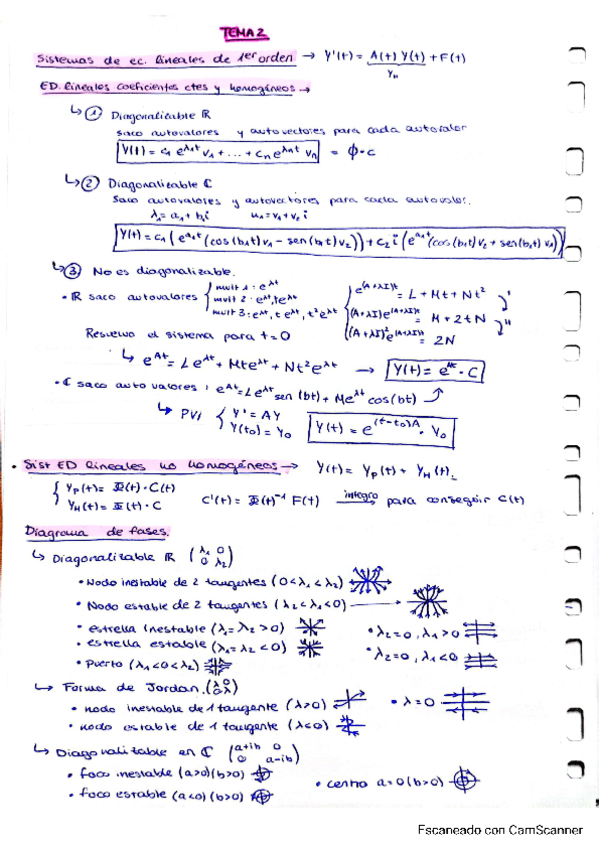 TEMA 2
Sistemas de ec. lineales de 1er orden → Y'(t) = A(t) Y(t) + F(t)
YH
ED. lineales coeficientes ctes y homogéneos →
↳ ① Diagonalizable ℝ
saco autovalores y autovectores para cada autovalor
Y(t) = c₁ e^λ₁t v₁ + ... + cₙ e^λₙt vₙ = ϕ·c
↳ ② Diagonalizable ℂ
saco autovalores y autovectores para cada autovalor.
λ₁ = a₁ + b₁i u₁ = v₁ + v₂ i
Y(t) = c₁ (e^a₁t (cos(b₁t) v₁ - sen(b₁t) v₂)) + c₂ i (e^a₁t (cos(b₁t) v₂ + sen(b₁t) v₁))
↳ ③ No es diagonalizable.
• ℝ saco autovalores { mult 1: e^λt
mult 2: e^λt, te^λt
mult 3: e^λt, t e^λt, t² e^λt
{ e^(A+λI)t = L + Mt + Nt²
(A+λI)e^(A+λI)t = M + 2tN
(A+λI)² e^(A+λI)t = 2N
Resuelvo el sistema para t=0
↳ e^At = L e^λt + Mt e^λt + Nt² e^λt → Y(t) = e^At · C
• ℂ saco autovalores: e^At = L e^λt sen(bt) + M e^λt cos(bt)
↳ PVI { Y' = AY
Y(t₀) = Y₀
Y(t) = e^(t-t₀)A · Y₀
• Sist ED lineales no homogéneos → Y(t) = YP(t) + YH(t)
{ YP(t) = Φ(t) · C(t)
YH(t) = Φ(t) · C
C'(t) = Φ(t)⁻¹ F(t) integro → para conseguir C(t)
Diagrama de fases.
↳ Diagonalizable ℝ (λ₁ 0
0 λ₂)
• Nodo inestable de 2 tangentes (0<λ₁<λ₂)
• Nodo estable de 2 tangentes (λ₂<λ₁<0)
• estrella inestable (λ₁=λ₂>0) • λ₂=0, λ₁>0
• estrella estable (λ₁=λ₂<0) • λ₂=0, λ₁<0
• Puerto (λ₁<0<λ₂)
↳ Forma de Jordan.
• nodo inestable de 1 tangente (λ>0) • λ=0
• nodo estable de 1 tangente (λ<0)
↳ Diagonalizable en ℂ (a+ib 0
0 a-ib)
• foco inestable (a>0)(b>0) • centro a=0 (b>0)
• foco estable (a<0)(b>0)
Escaneado con CamScanner